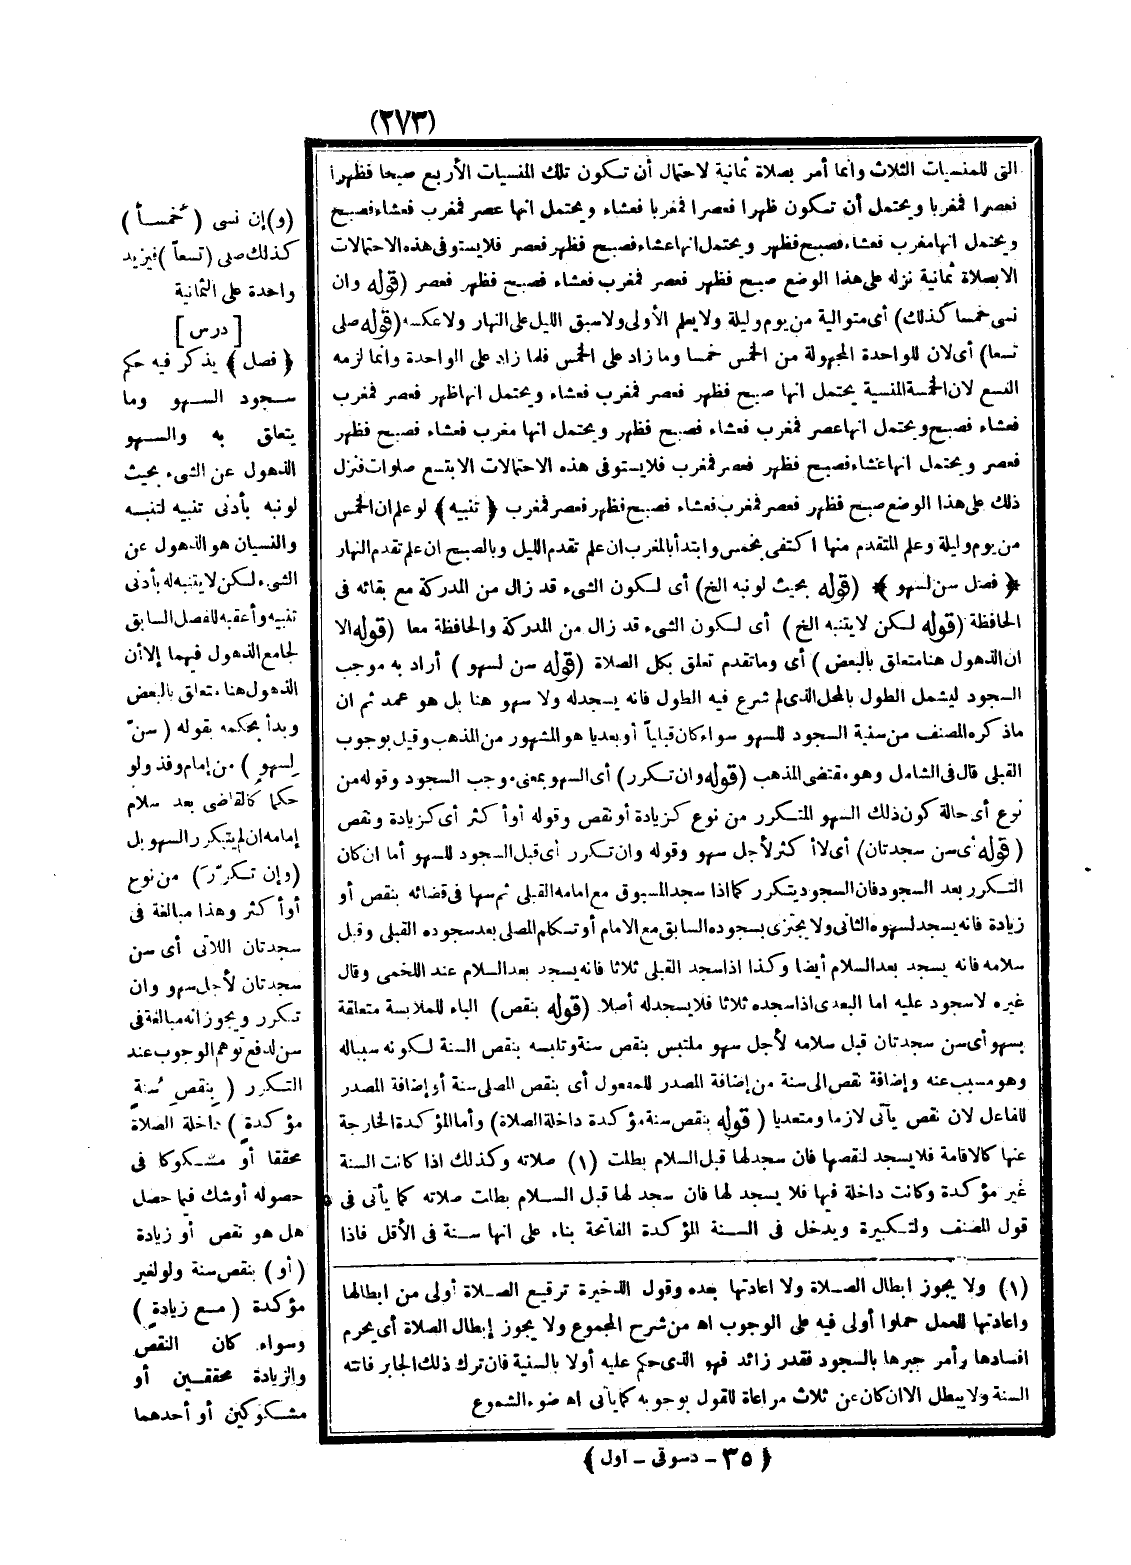 (٢٧٣)
التى للمنسيات الثلاث وانما أمر بصلاة ثمانية لاحتمال أن تكون تلك المنسيات الأربع صبحا فظهرا
فعصرا فمغربا ويحتمل أن تكون ظهرا فعصرا فمغربا فعشاء ويحتمل انها عصر فمغرب فعشاء فصبح
ويحتمل انها مغرب فعشاء فصبح فظهر ويحتمل انها عشاء فصبح فظهر فعصر فلا يستوفى هذه الاحتمالات
الا بصلاة ثمانية نزله على هذا الوضع صبح فظهر فعصر فمغرب فعشاء فصبح فظهر فعصر (قوله وان
نسى خمسا كذلك) أى متوالية من يوم وليلة ولا يعلم الأولى ولا سبق الليل على النهار ولا عكسه (قوله صلى
تسعا) أى لان للواحدة المجهولة من الخمس خمسا وما زاد على الخمس فلما زاد على الواحدة وانما لزمه
التسع لان الخمسة المنسية يحتمل انها صبح فظهر فعصر فمغرب فعشاء ويحتمل انها ظهر فعصر فمغرب
فعشاء فصبح ويحتمل انها عصر فمغرب فعشاء فصبح فظهر ويحتمل انها مغرب فعشاء فصبح فظهر
فعصر ويحتمل انها عشاء فصبح فظهر فعصر فمغرب فلا يستوفى هذه الاحتمالات الا بتسع صلوات فنزل
ذلك على هذا الوضع صبح فظهر فعصر فمغرب فعشاء فصبح فظهر فعصر فمغرب ﴿ تنبيه ﴾ لو علم ان الخمس
من يوم وليلة وعلم المتقدم منها اكتفى بخمس وابتدأ بالمغرب ان علم تقدم الليل وبالصبح ان علم تقدم النهار
﴿ فصل سن لسهو ﴾ (قوله بحيث لو نبه الخ) أى لكون الشىء قد زال من المدركة مع بقائه فى
الحافظة (قوله لكن لا يتنبه الخ) أى لكون الشىء قد زال من المدركة والحافظة معا (قوله الا
ان الذهول هنا متعلق بالبعض) أى وما تقدم تعلق بكل الصلاة (قوله سن لسهو) أراد به موجب
السجود ليشمل الطول بالمحل الذى لم شرع فيه الطول فانه يسجد له ولا سهو هنا بل هو عمد ثم ان
ما ذكره المصنف من سنية السجود للسهو سواء كان قبلياً أو بعديا هو المشهور من المذهب وقيل بوجوب
القبلى قال فى الشامل وهو مقتضى المذهب (قوله وان تكرر) أى السهو بمعنى موجب السجود وقوله من
نوع أى حالة كون ذلك السهو المتكرر من نوع كزيادة أو نقص وقوله أو أكثر أى كزيادة ونقص
(قوله أى سن سجدتان) أى لا أكثر لأجل سهو وقوله وان تكرر أى قبل السجود للسهو أما ان كان
التكرر بعد السجود فان السجود يتكرر كما اذا سجد المسبوق مع امامه القبلى ثم سها فى قضائه بنقص أو
زيادة فانه يسجد لسهوه الثانى ولا يجتزى بسجوده السابق مع الامام أو تكلم المصلى بعد سجوده القبلى وقبل
سلامه فانه يسجد بعد السلام أيضا وكذا اذا سجد القبلى ثلاثا فانه يسجد بعد السلام عند اللخمى وقال
غيره لا سجود عليه اما البعدى اذا سجده ثلاثا فلا يسجد له أصلا (قوله بنقص) الباء للملابسة متعلقة
بسهو أى سن سجدتان قبل سلامه لأجل سهو ملتبس بنقص سنة وتلبسه بنقص السنة لكونه سببا له
وهو مسبب عنه وإضافة نقص الى سنة من إضافة المصدر للمفعول أى بنقص المصلى سنة أو إضافة المصدر
للفاعل لان نقص يأتى لازما ومتعديا (قوله بنقص سنة مؤكدة داخلة الصلاة) وأما المؤكدة الخارجة
عنها كالاقامة فلا يسجد لنقصها فان سجد لها قبل السلام بطلت (١) صلاته وكذلك اذا كانت السنة
غير مؤكدة وكانت داخلة فيها فلا يسجد لها فان سجد لها قبل السلام بطلت صلاته كما يأتى فى
قول المصنف ولتكبيرة ويدخل فى السنة المؤكدة الفاتحة بناء على انها سنة فى الأقل فاذا
(١) ولا يجوز ابطال الصلاة ولا اعادتها بعده وقول الذخيرة ترقيع الصلاة أولى من ابطالها
واعادتها للعمل حملوا أولى فيه على الوجوب اه من شرح المجموع ولا يجوز إبطال الصلاة أى يحرم
افسادها وأمر جبرها بالسجود فقدر زائد فهو الذى حكم عليه أولا بالسنية فان ترك ذلك الجابر فاتته
السنة ولا يبطل الا ان كان عن ثلاث مراعاة للقول بوجوبه كما يأتى اه ضوء الشموع
(و) إن نسى (خمساً)
كذلك صلى (تسعاً) فيزيد
واحدة على الثمانية
[درس]
﴿ فصل ﴾ يذكر فيه حكم
سجود السهو وما
يتعلق به والسهو
الذهول عن الشىء بحيث
لو نبه بأدنى تنبيه لتنبه
والنسيان هو الذهول عن
الشىء لكن لا يتنبه له بأدنى
تنبيه وأعقبه للفصل السابق
لجامع الذهول فيهما إلا أن
الذهول هنا متعلق بالبعض
وبدأ بحكمه بقوله (سنّ
لِسهوٍ) من إمام وفذ ولو
حكما كالقاضى بعد سلام
إمامه ان لم يتكرر السهو بل
(وإن تكرّرَ) من نوع
أو أكثر وهذا مبالغة فى
سجدتان اللاتى أى سن
سجدتان لأجل سهو وان
تكرر ويجوز انه مبالغة فى
سن لدفع توهم الوجوب عند
التكرر (بِنقصِ سُنةٍ
مؤكدةٍ) داخلة الصلاة
محققا أو مشكوكا فى
حصوله أو شك فيما حصل
هل هو نقص أو زيادة
(أو) بنقص سنة ولو غير
مؤكدة (مع زيادةٍ)
وسواء كان النقص
والزيادة محققين أو
مشكوكين أو أحدهما
﴿ ٣٥ - دسوقى - اول ﴾